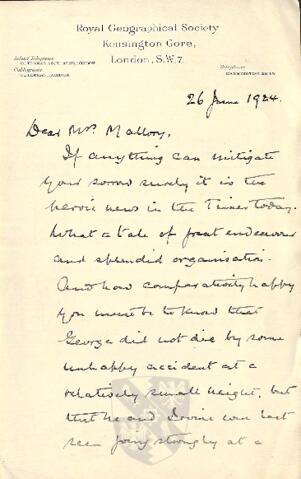 Royal Geographical Society
Kensington Gore,
London, S.W.7.
26 June 1924.
Dear Mrs. Mallory,
If anything can mitigate
your sorrow surely it is the
heroic news in the Times today.
What a tale of great endeavour
and splendid organisation.
And how comparatively happy
you must be to know that
George did not die by some
unhappy accident at a
relatively small height, but
that he and Irvine were last
seen going strongly at a